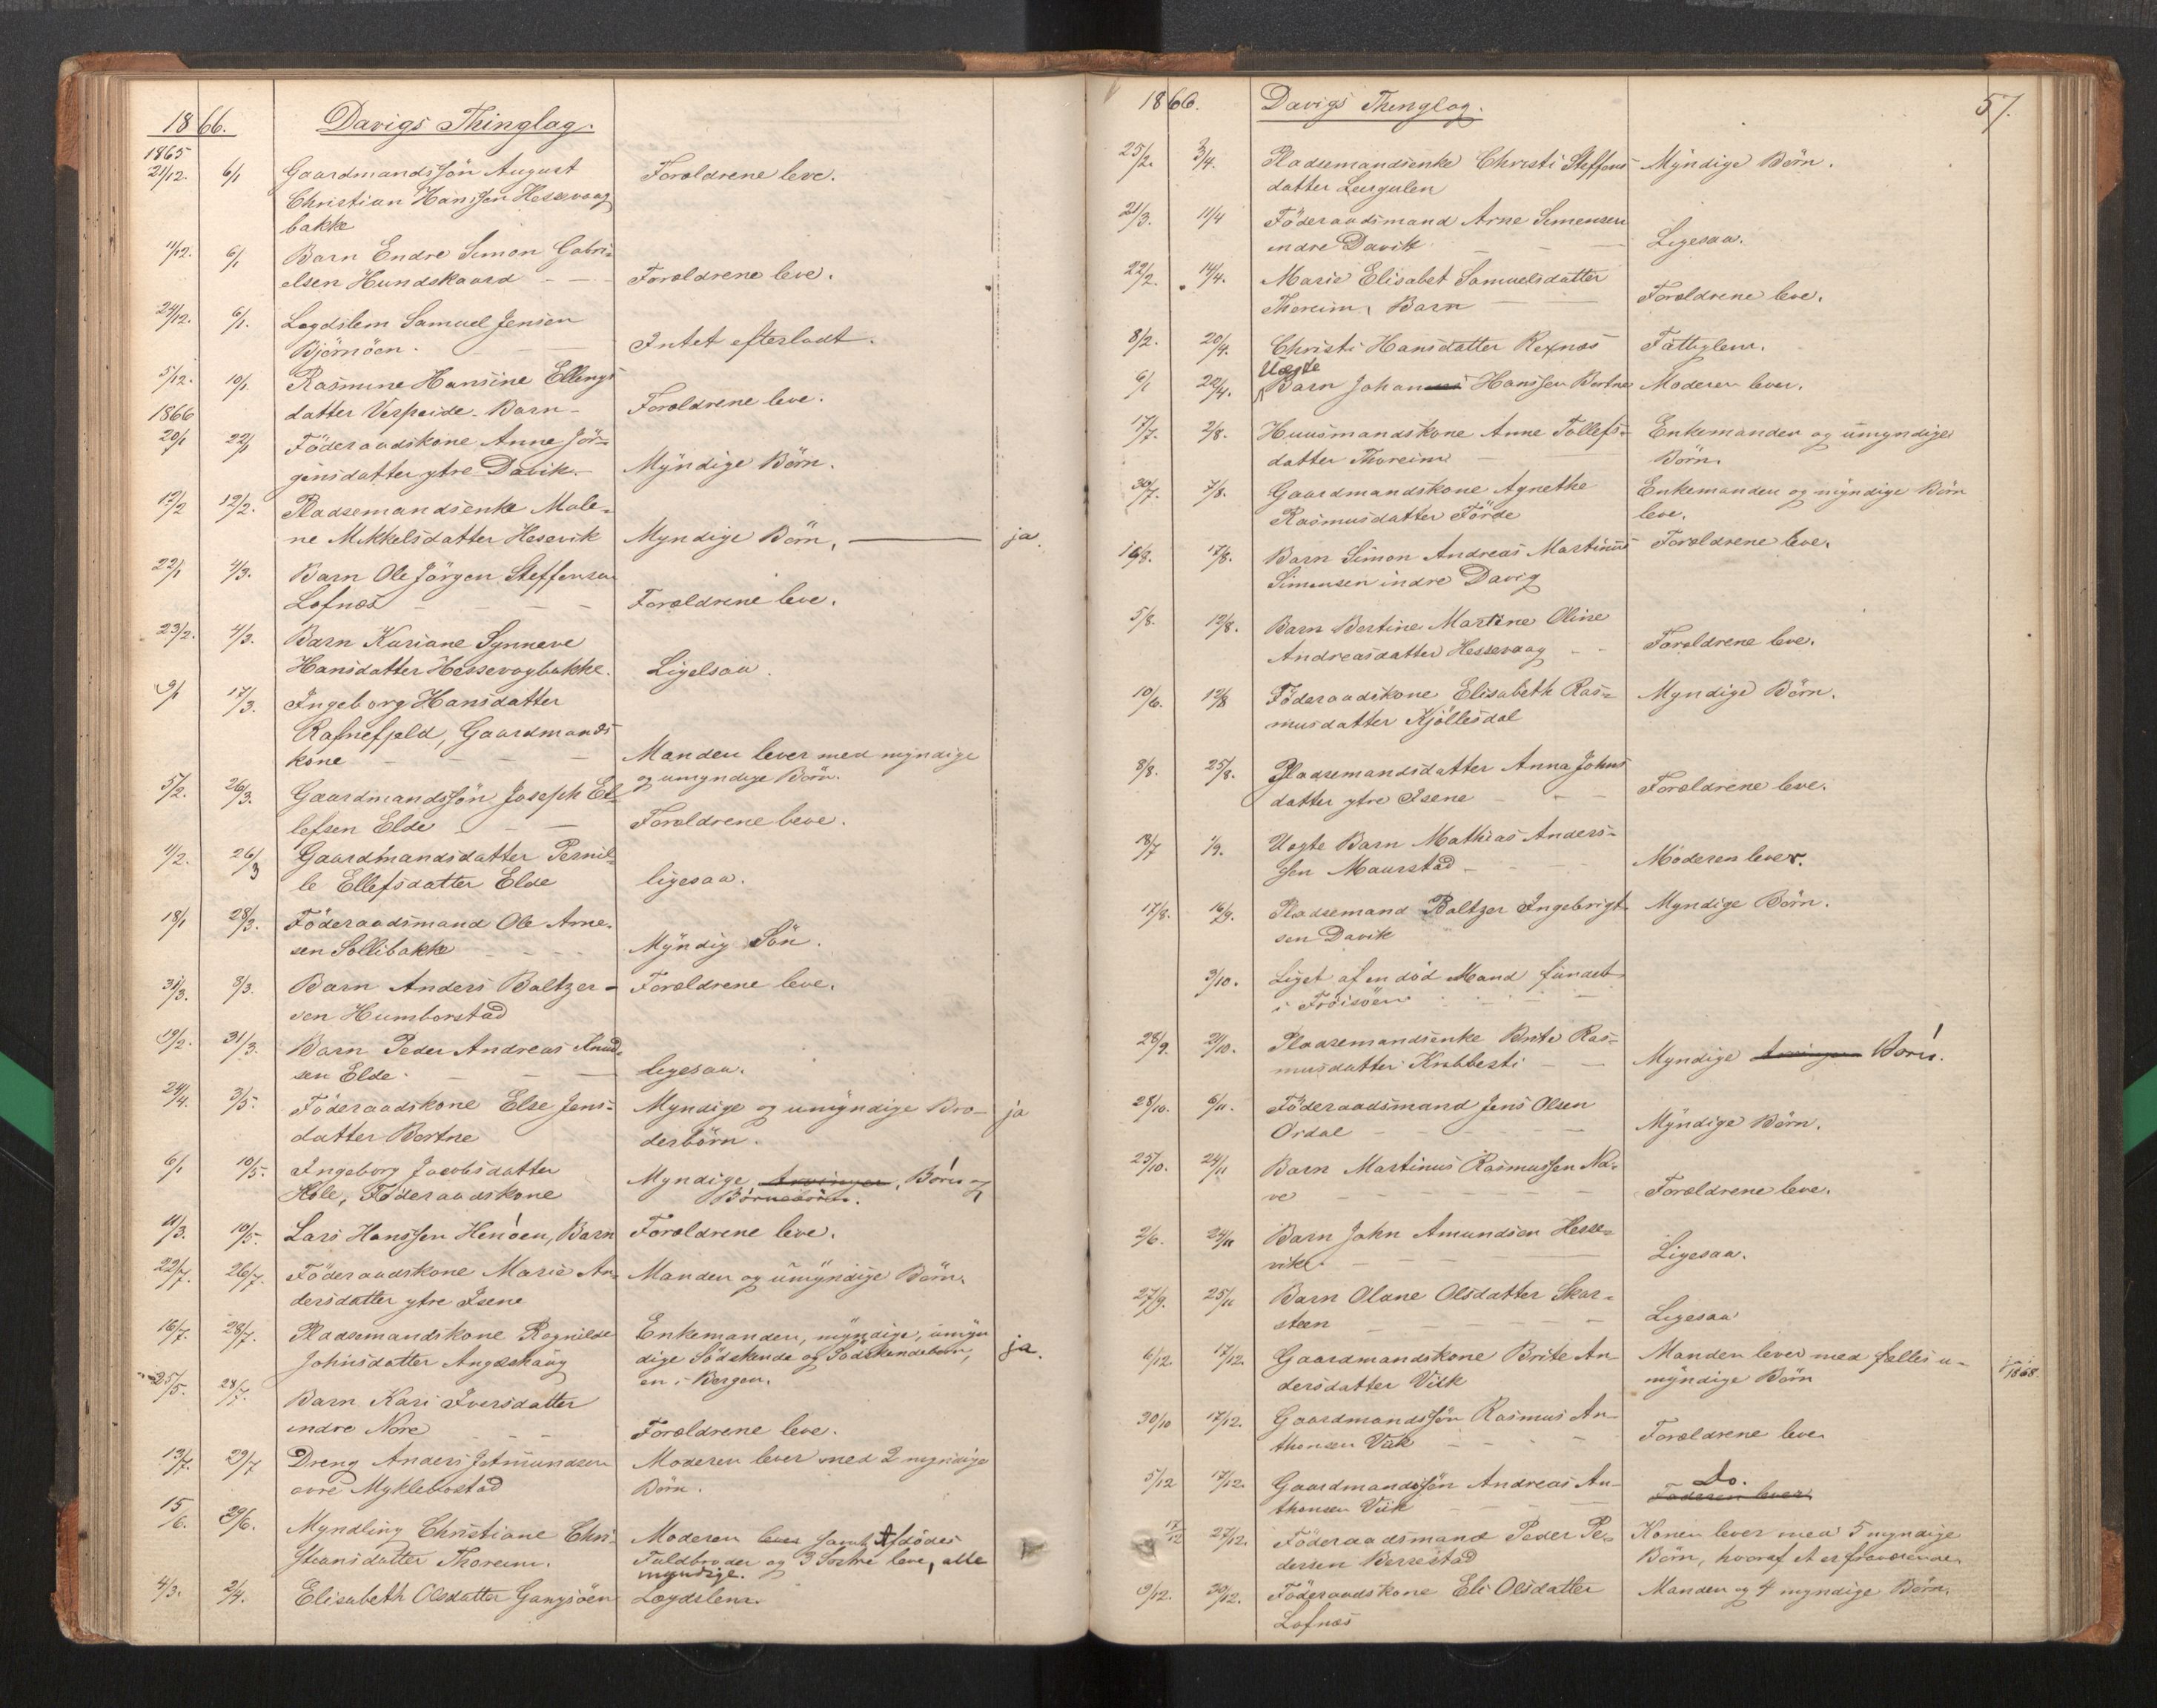 1866. Davigs Thinglag.
1865
21/12. 6/1 Gaardmandssön August Forældrene leve.
Christian Hanssen Hessevaag
bakke
11/12. 6/1 Barn Endre Simon Gabri-
elsen Hundskaard - - Forældrene leve.
24/12. 6/1. Lægdslem Samuel Jensen
Björnöen. Intet efterladt.
5/12. 10/1. Rasmine Hansine Ellings
1866
datter Verpeide - Barn - Forældrene leve.
20/1 22/1 Föderaadskone Anne Jör-
gensdatter ytre Davik. - Myndige Börn.
12/2 12/2. Pladsemandsenke Male-
ne Mikkelsdatter Hesevik Myndige Börn. ja.
22/1 4/3. Barn Ole Jörgen Steffensen
Lofnæs - - - Forældrene leve.
23/2. 4/3. Barn Kariane Synneve
Hansdatter Hessevagbakke. Ligelsaa.
9/1 17/3. Ingeborg Hansdatter
Rafnefjeld, Gaardmands
kone - - - Manden lever med myndige
og umyndige Börn.
5/2. 26/3. Gaardmandssön Joseph El-
lefsen Elde - - Forældrene leve.
1/2. 26/3 Gaardmandsdatter Pernil-
le Ellefsdatter Elde ligesaa.
18/1 28/3. Föderaadsmand Ole Arne-
sen Sollibakke - - - Myndig Sön.
31/3. 3/3. Barn Anders Baltzer- Forældrene leve.
sen Humborstad
19/2. 31/3. Barn Peder Andreas Knud-
sen Elde - - ligesaa.
24/4. 3/5. Föderaadskone Else Jens- Myndige og umyndige Bro- ja
datter Bortne derbörn.
6/1 10/5. Ingeborg Jacobsdatter Myndige Arvinger, Börn og
Hole, Föderaadskone Börnebörn.
11/3. 10/5. Lars Hanssen Henöen, Barn Forældrene leve.
22/7. 26/7. Föderaadskone Marie An- Manden og umyndige Börn.
dersdatter ytre Isene
16/7. 28/7. Pladsemandskone Rognilde Enkemanden, myndige, umyn
Johnsdatter Angeshaug dige Södskende og Södskendebørn, ja.
en i Bergen.
25/5. 28/7. Barn Kari Iversdatter
indre Nore - - Forældrene leve.
13/7. 29/7 Dreng Anders Jetmundsen Moderen lever med 2 myndige
övre Myklebostad Börn.
15/6. 29/6. Myndling Christiane Chri- Moderen lever samt Afdödes
stiansdatter Thoreim. Fuldbroder og 3 Søstre leve, alle
myndige.
4/3. 2/4. Elisabeth Olsdatter Gangsöen Lægdslem.
1866. Davigs Thinglag. 57.
25/2. 3/4. Pladsemandsenke Christi Steffens Myndige Börn.
datter Leirgulen
21/3. 11/4 Föderaadsmand Arne Simensen
indre Davik - - - Ligesaa.
22/2. 14/4. Marie Elisabet Samuelsdatter
Thoreim, Barn - - Forældrene leve.
8/2. 20/4. Christi Hansdatter Rexnæs Fattiglem.
Uægte
6/1 22/4. Barn Johannes Hanssen Bortne Moderen lever.
17/7. 2/8. Huusmandskone Anne Tollefs- Enkemanden og umyndige
datter Thoreim - - Börn.
30/7. 7/8. Gaardmandskone Agnethe Enkemanden og myndige Börn
Rasmusdatter Förde leve.
16/8. 17/8. Barn Simon Andreas Martinus Forældrene leve.
Simensen indre Davig
5/8. 12/8. Barn Bertine Martine Oline
Andreasdatter Hessevaag - - Forældrene leve.
10/6. 12/8 Föderaadskone Elisabeth Ras- Myndige Börn.
musdatter Kjöllesdal
8/8. 25/8. Pladsemandsdatter Anna Johns
datter ytre Isene - - - Forældrene leve.
18/7 1/9. Uægte Barn Mathias Anders-
sen Maurstad - - - Moderen lever.
17/8. 16/9. Pladsemand Baltzer Ingebrigt- Myndige Börn.
sen Davik
3/10. Liget af en död Mand fundet
i Fröisöen - - -
28/9. 21/10. Pladsemandsenke Brite Ras-
musdatter Krabbesti - - Myndige Arvinger Börn.
28/10. 6/11. Föderaadsmand Jens Olsen
Ordal - - - Myndige Börn.
25/10. 24/11 Barn Martinus Rasmussen Na-
ve - - - Forældrene leve.
2/6. 24/11 Barn John Amundsen Hesse-
vik - - - Ligesaa.
27/9. 25/11 Barn Olane Olsdatter Skar-
steen - - - Ligesaa
6/12. 17/12. Gaardmandskone Brite An- Manden lever med fælles u-
dersdatter Viik myndige Börn 1868.
30/10 17/12. Gaardmandssön Rasmus An-
thonsen Viik - - - Forældrene leve
5/12 17/12. Gaardmandssön Andreas An- Do.
thonsen Viik - - Faderen lever
17/12 27/12. Föderaadsmand Peder Pe- Konen lever med 5 myndige
dersen Berrestad Börn, hvoraf et er fraværende.
9/12. 30/12. Föderaadskone Eli Olsdatter Manden og 4 myndige Börn.
Lofnæs